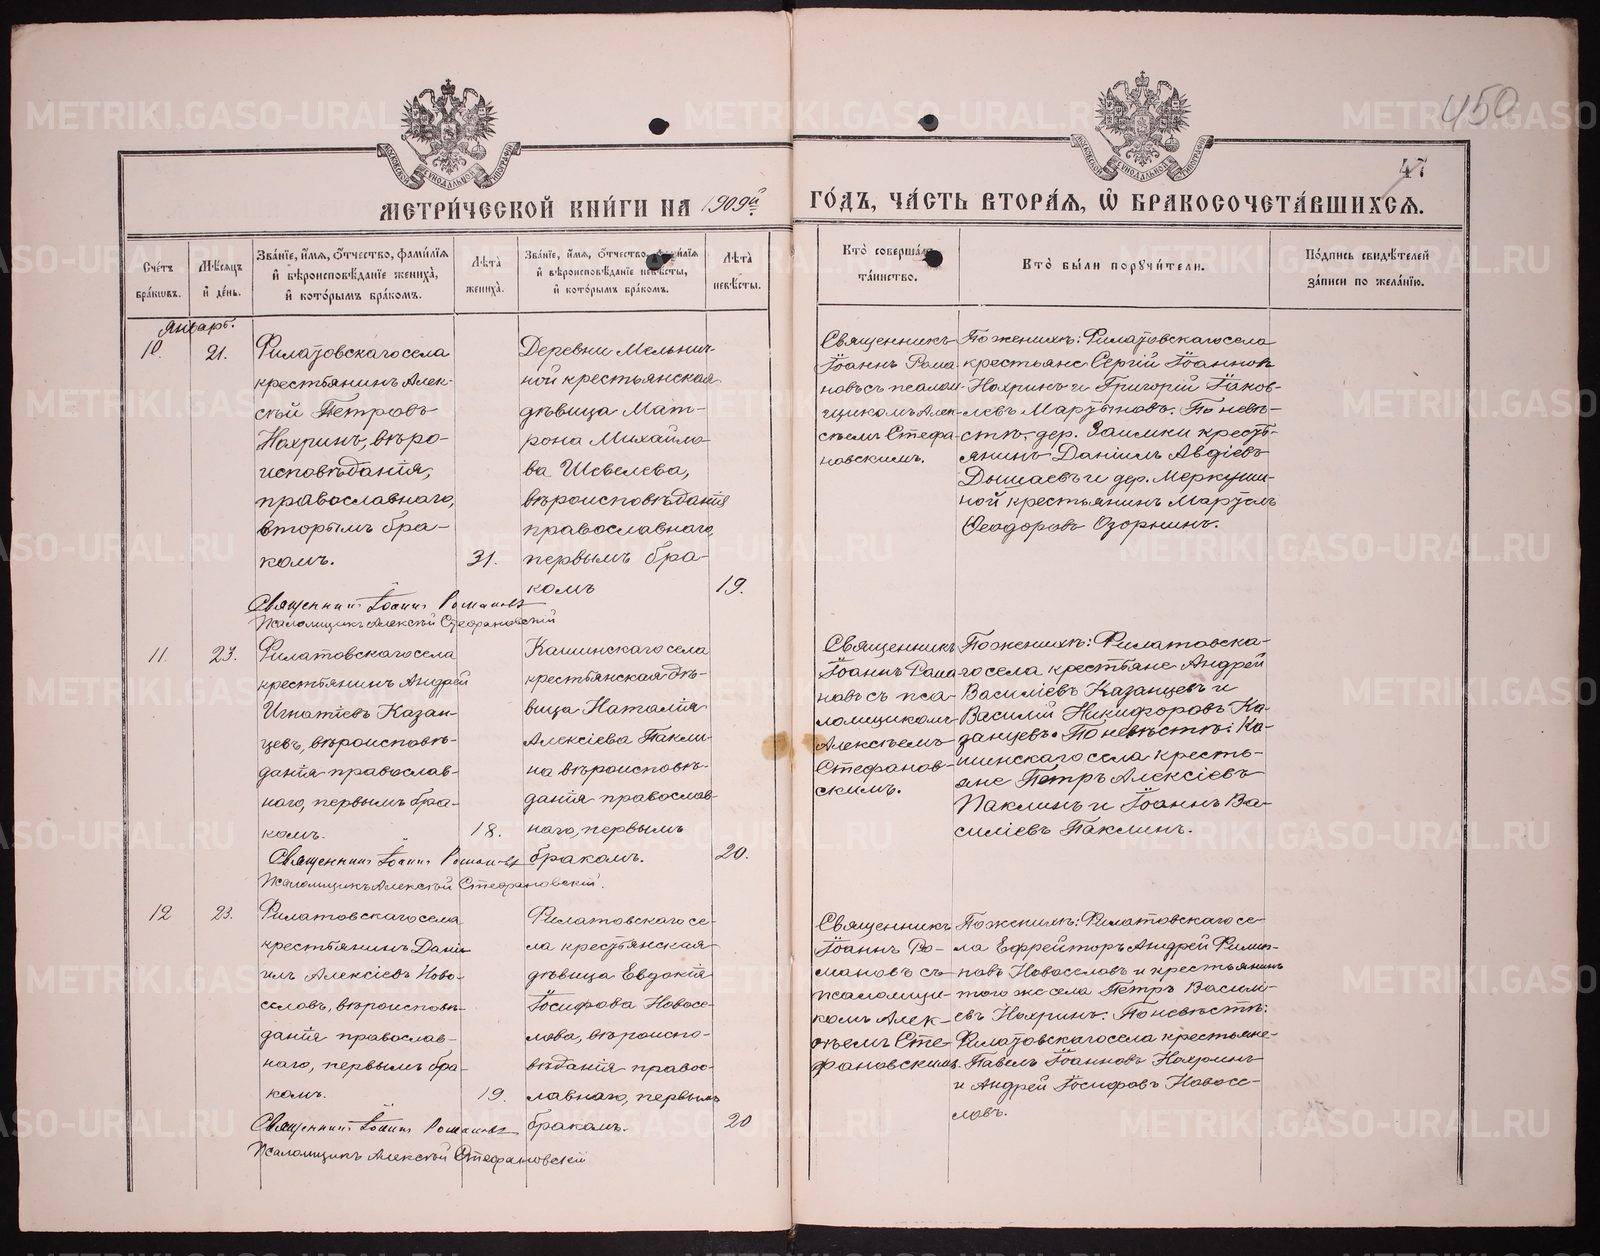 450
47
МЕТРИ́ЧЕСКОЙ КНИ́ГИ НА 1909й ГО́ДЪ, ЧА́СТЬ ВТОРА́Я, Ѿ БРАКОСОЧЕТА́ВШИХСЯ.
Сче́тъ бра́кѡвъ.
Мѣ́сяцъ и҆ де́нь.
Зва́нїе, и҆́мя, ѻ҆́тчество, фами́лїя и҆ вѣроисповѣ́данїе жениха̀, и҆ кото́рымъ бра́комъ.
Лѣта̀ жениха̀.
Зва́нїе, и҆́мя, ѻ҆́тчество, фами́лїя и҆ вѣроисповѣ́данїе невѣ́сты, и҆ кото́рымъ бра́комъ.
Лѣта̀ невѣ́сты.
Кто̀ соверша́лъ та́инство.
Кто̀ бы́ли порꙋчи́тели.
По́дпись свидѣ́телей за́писи по жела́нїю.
Январь.
10.
21.
Филатовскаго села
крестьянинъ Алек-
сѣй Петровъ
Нохринъ, вѣро-
исповѣданія,
православнаго,
вторымъ бра-
комъ.
31.
Деревни Мельнич-
ной крестьянская
дѣвица Мат-
рона Михайло-
ва Шевелева,
вѣроисповѣданія
православнаго,
первымъ бра-
комъ
19.
Священникъ
Іоаннъ Рома
новъ съ псалом-
щикомъ Алек-
сѣемъ Стефа
новскимъ.
По женихѣ: Филатовскаго села
крестьяне Сергій Іоанновъ
Нохринъ и Григорій Іаков-
левъ Мартьновъ. По невѣ-
стѣ: дер. Заимки кресть-
янинъ Даніилъ Авдіевъ
Дышаевъ и дер. Меркуши-
ной крестьянинъ
Ѳеодоровъ Озорнинъ.
Священникъ Іоаннъ Романовъ
Псаломщикъ Алексѣй Стефановскій
11.
23.
Филатовскаго села
крестьянинъ Андрей
Игнатіевъ Казан-
цевъ, вѣроисповѣ-
данія православ-
наго, первымъ бра-
комъ.
18.
Кашинскаго села
крестьянская дѣ-
вица Наталія
Алексіева Пакли-
на вѣроисповѣ-
данія православ-
наго, первымъ
бракомъ.
20.
Священникъ
Іоаннъ Рома
новъ съ пса-
ломщикомъ
Алексѣемъ
Стефанов-
скимъ.
По женихѣ: Филатовска-
го села крестьяне Андрей
Василіевъ Казанцевъ и
Василій Никифоровъ Ка-
занцевъ. По невѣстѣ: Ка-
шинскаго села кресть-
яне Петръ Алексіевъ
Паклинъ и Іоаннъ Ва-
силіевъ Паклинъ.
Священникъ Іоаннъ Романовъ
Псаломщикъ Алексѣй Стефановскій.
12
23.
Филатовскаго села
крестьянинъ Дани
илъ Алексіевъ Ново-
селовъ, вѣроисповѣ-
данія православ-
наго, первымъ бра-
комъ.
19.
Филатовскаго се-
ла крестьянская
дѣвица Евдокія
Іосифова Новосе-
лова, вѣроиспо-
вѣданія правос-
лавнаго, первымъ
бракомъ.
20
Священникъ
Іоаннъ Ро-
мановъ съ
псаломщи-
комъ Алек-
сѣемъ Сте-
фановскимъ.
По женихѣ: Филатовскаго се-
ла Ефрейторъ Андрей Филип-
повъ Новоселовъ и крестьянинъ
того же села Петръ Васили-
евъ Нохринъ. По невѣстѣ:
Филатовскаго села крестьяне
Павелъ Іоанновъ Нохринъ
и Андрей Іосифовъ Новосе-
ловъ.
Священникъ Іоаннъ Романовъ
Псаломщикъ Алексѣй Стефановскій
METRIKI.GASO-URAL.RU